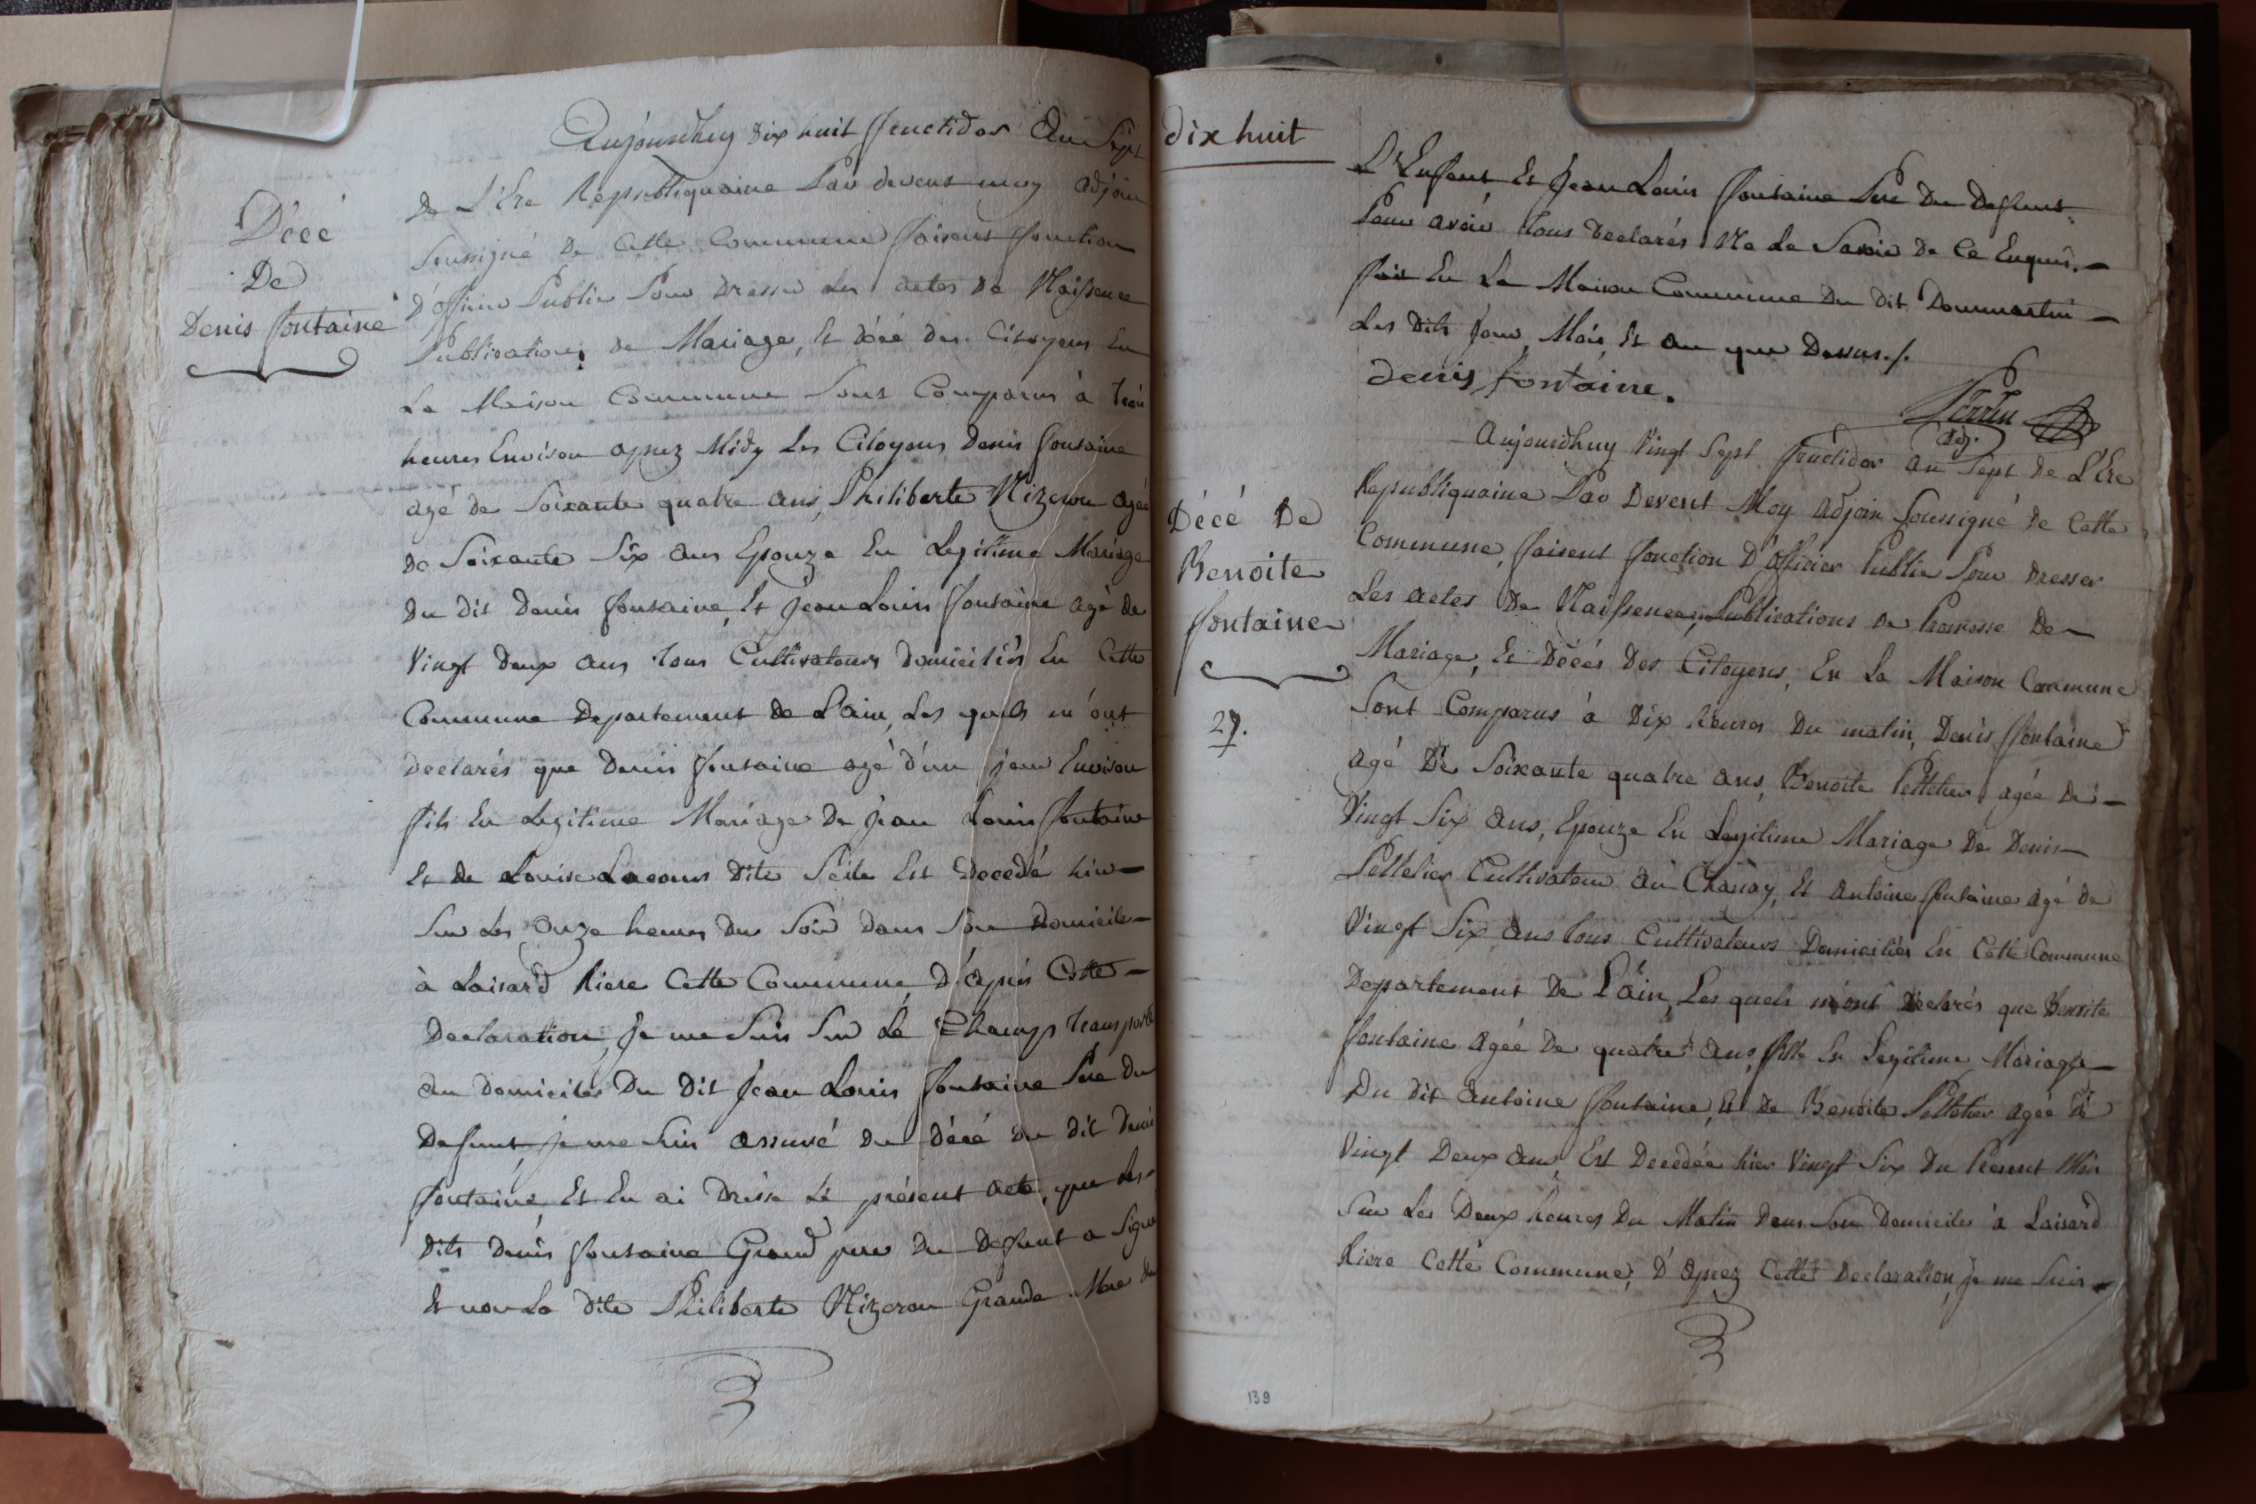 Décé
De
Denis fontaine
Aujourdhuy dix huit fructidor an Sept
de L'Ere Republiquaine Par devent moy adjoin
soussigné de Cette Commune faisent fonction
D'officier Public Pour dresser Les actes de Naissence
Publications de Mariage, Et décé des Citoyens En
La Maison Commune Sont Comparus à trois
heures Environ apprez Midy Les Citoyens Denis fontaine
agé de Soixante quatre ans, Philiberte Nizeron agée
de Soixante Six ans Epouze En Legitime Mariage
du dit denis fontaine, Et Jean Louis fontaine agé de
Vingt deux ans tous Cultivateurs domiciliés En Cette
Commune Departement de L'ain, Les quels m'ont
declarés que denis fontaine agé d'un jour Environ
fils En Legitime Mariage de jean Louis fontaine
Et de Louise Lacour dite Est Decedé hier
Sur Les Onze heures du Soir dans Son domicile
à Laisard Riere Cette Commune, D'apprés Cette
Declaration, je me Suis Sur Le Champ transporté
au domicile Du Dit Jean Louis fontaine Pere du
Defunt, je me Suis assuré du Décé du dit Denis
fontaine, Et En ai Dressé Le présent acte, que Les
dits denis fontaine Grand pere du Defunt a Signé
Et non La dite Philiberte Nizeron Grande Mere de
dix huit
L'Enfent Et Jean Louis fontaine Pere Du Defunt
Pour avoir tous declarés Ne Le Savoir de Ce Enquis.
fait En La Maison Commune Du dit Dommartin
Les dits jour, Mois, Et an que Dessus./.
denis fontaine.
Perrin
Adj.
Décé De
Benoite
fontaine
27.
Aujourdhuy Vingt Sept fructidor an Sept de L'Ere
Republiquaine Par Devent Moy adjoin Soussigné de Cette
Commune, faisent fonction D'officier Public Pour dresser
Les actes De Naissence, Publications de Promesse De
Mariage, Et Décés Des Citoyens, En La Maison Commune
Sont Comparus à Dix heures Du matin, Denis fontaine
agé De Soixante quatre ans, Benoite Pelletier agée De
Vingt Six ans, Epouze En Legitime Mariage De Denis
Pelletier Cultivateur au Chanay, Et antoine fontaine agé de
Vingt Six ans tous Cultivateurs Domiciliés En Cette Commune
Departement De L'ain, Les quels m'ont declarés que Benoite
fontaine agée De quatre ans, fille En Legitime Mariage
Du dit antoine fontaine, Et de Benoite Pelletier agée de
Vingt Deux ans, Est Decedée hier Vingt Six Du Present Mois
Sur Les Deux heures Du Matin dans Son Domicile à Laisard
Riere Cette Commune, D'aprez Cette Declaration, je me Suis
139